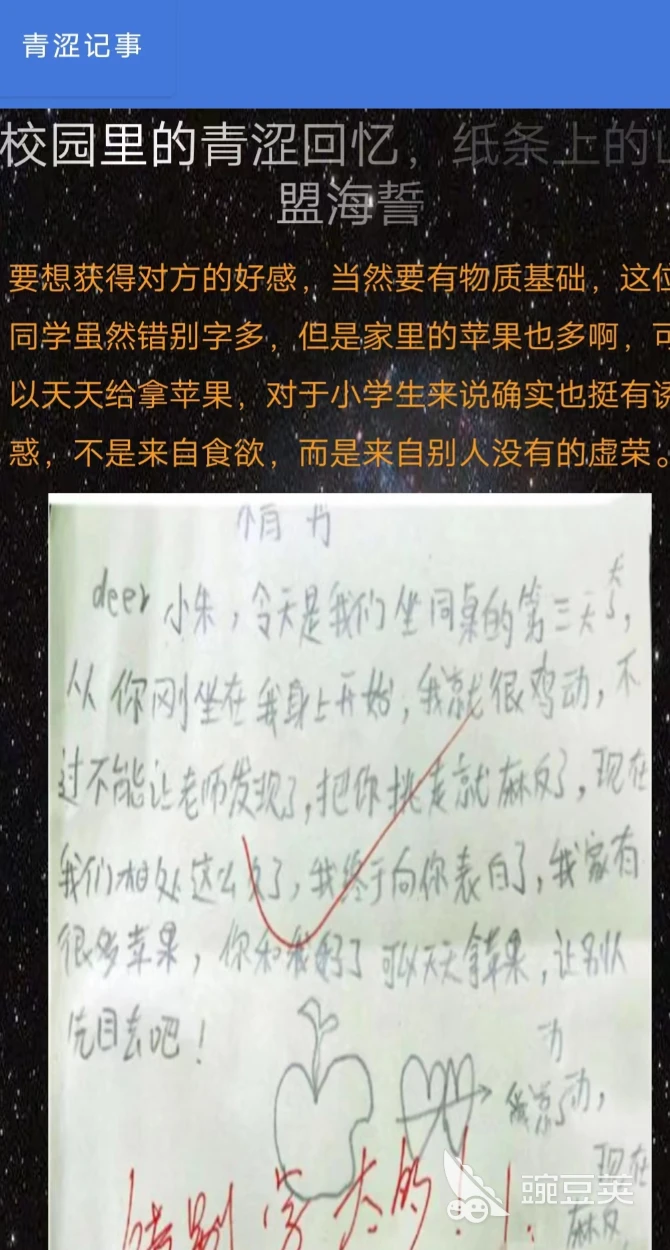 青涩记事
校园里的青涩回忆，纸条上的
盟海誓
要想获得对方的好感，当然要有物质基础，这位
同学虽然错别字多，但是家里的苹果也多啊，可
以天天给拿苹果，对于小学生来说确实也挺有诱
惑，不是来自食欲，而是来自别人没有的虚荣。
情书
deer 小朱，今天是我们坐同桌的第三天了，
从你刚坐在我身上开始，我就很鸡动，不
过不能让老师发现了，把你挑走就麻反了，现在
我们相处这么久了，我终于向你表白了，我家有
很多苹果，你和我好了可以天天拿苹果，让别人
羡目去吧！
动
动，
现在
麻反
错别字太的！！
豌豆荚